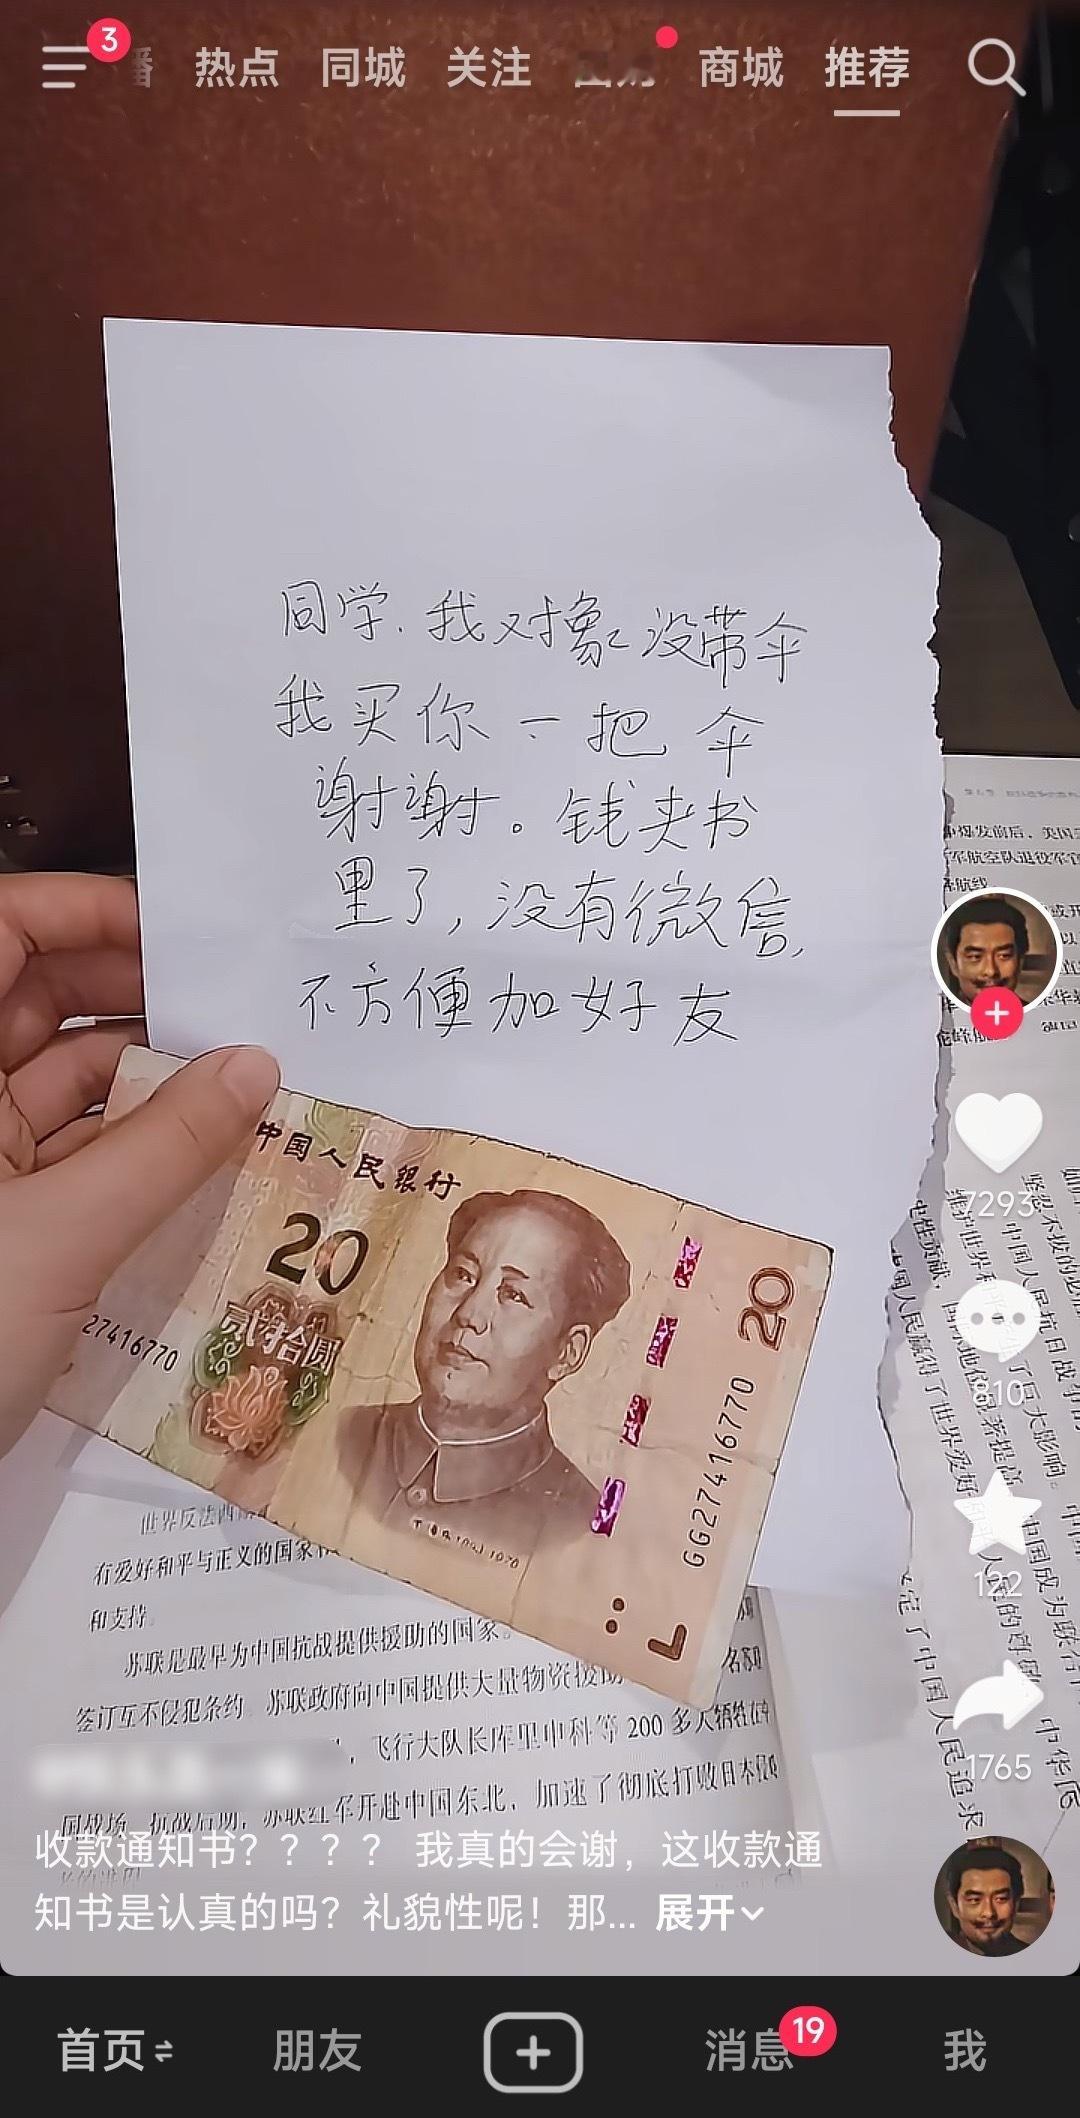 3
热点 同城 关注 商城 推荐
同学.我对象没带伞
我买你一把伞
谢谢。钱夹书
里了,没有微信,
不方便加好友
中国人民银行
20
贰拾圆
27416770
20
GG27416770
世界反法西
有爱好和平与正义的国家
和支持。
苏联是最早为中国抗战提供援助的国家。
签订互不侵犯条约 苏联政府向中国提供大量物资援
，飞行大队长库里申科等 200 多人牺牲在
国战场。抗战后期，苏联红军开赴中国东北，加速了彻底打败日本侵
7293
810
122
1765
收款通知书？？？？ 我真的会谢，这收款通
知书是认真的吗？礼貌性呢！那... 展开
首页 朋友 消息 19 我